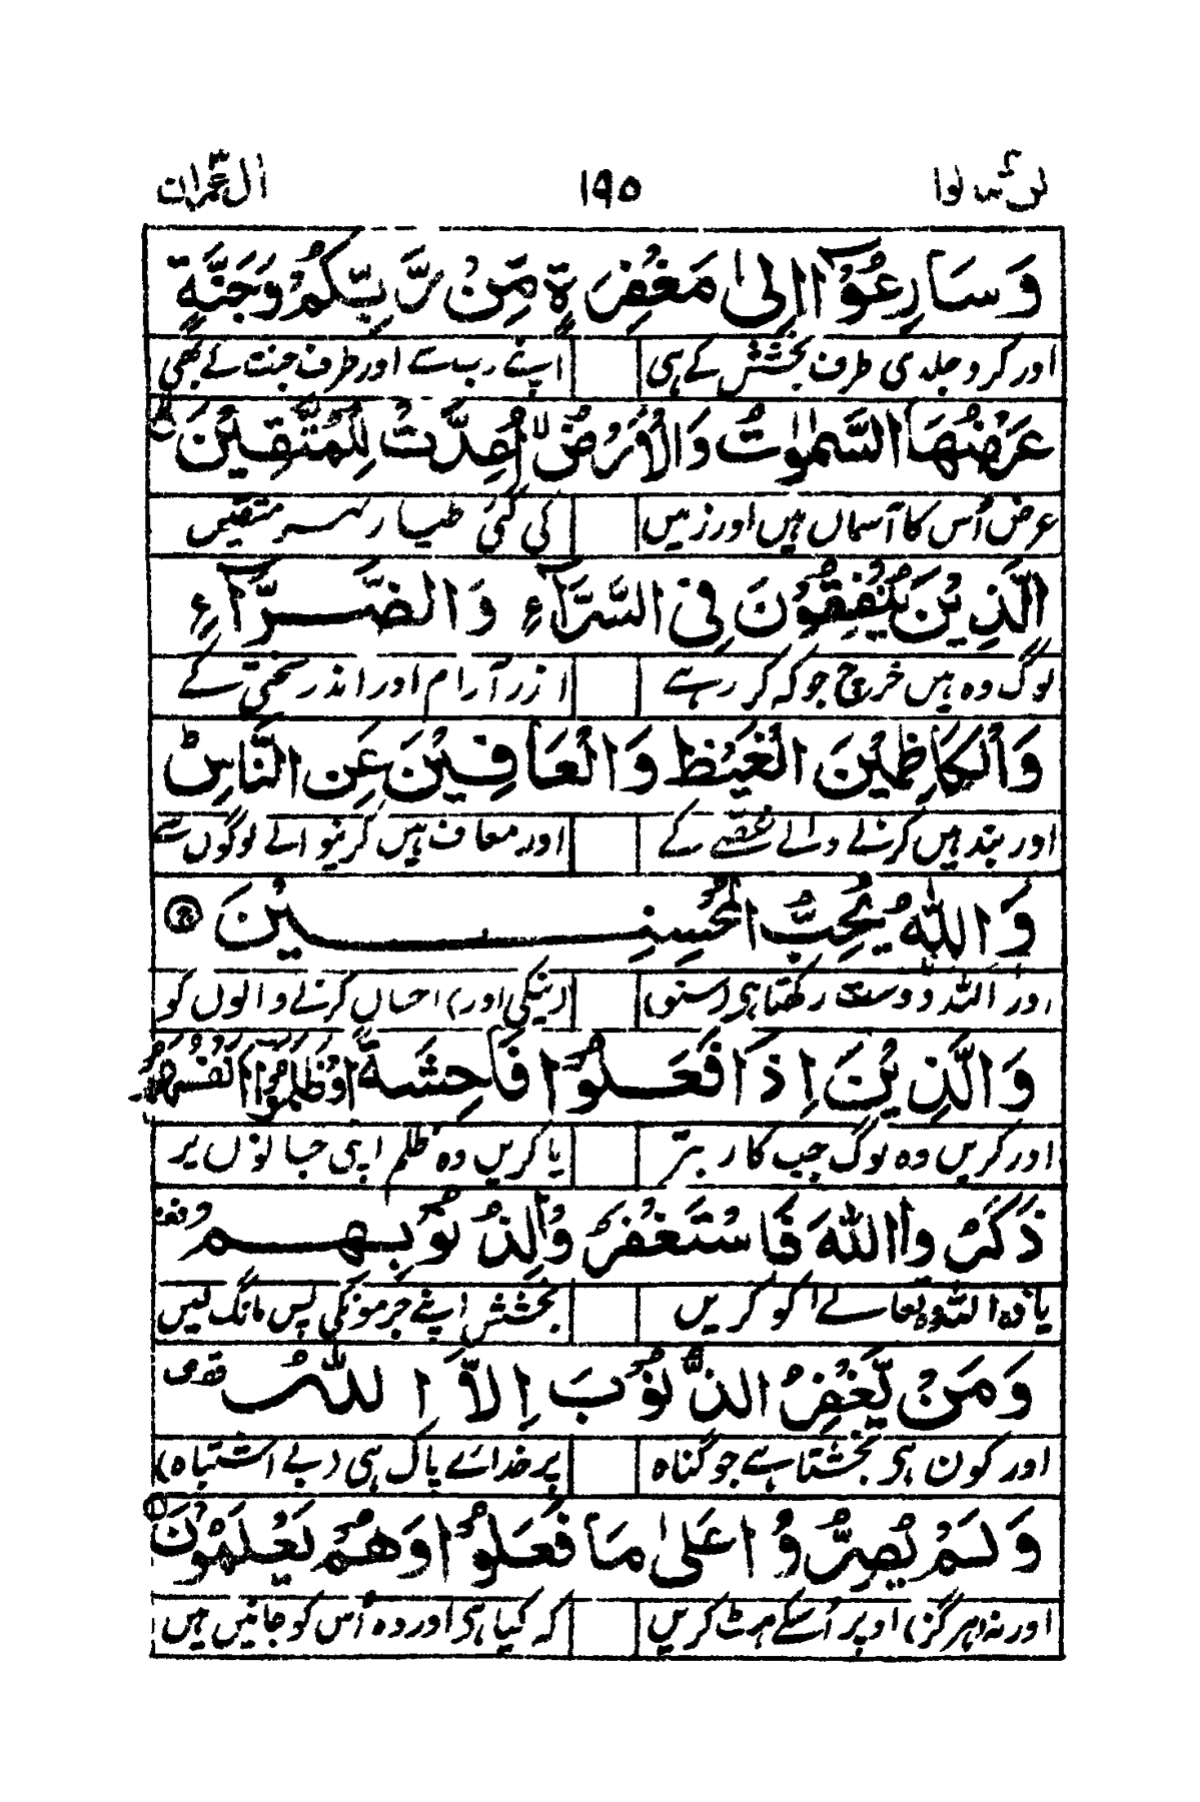 لن تنالوا ١٩٥ ال عمران
وَسَارِعُوْٓا اِلٰى مَغْفِرَةٍ مِّنْ رَّبِّكُمْ وَجَنَّةٍ
اور کرو جلدی طرف بخشش کے ہی اپنے رب سے اور طرف جنت کے بھی
عَرْضُهَا السَّمٰوٰتُ وَالْاَرْضُ ۙ اُعِدَّتْ لِلْمُتَّقِيْنَ
عرض اُس کا آسماں ہیں اور زمیں کی گئی طیار متقیں
الَّذِيْنَ يُنْفِقُوْنَ فِى السَّرَّآءِ وَالضَّرَّآءِ
لوگ وہ ہیں خرچ جو کہ کر رہے اندر آرام اور اندر سختی کے
وَالْكَاظِمِيْنَ الْغَيْظَ وَالْعَافِيْنَ عَنِ النَّاسِ ؕ
اور بند ہیں کرنے والے غصّے کے اور معاف ہیں کرنیوالے لوگوں سے
وَاللّٰهُ يُحِبُّ الْمُحْسِنِيْنَ
اور اللہ دوست رکھتا ہی (سنو) (نیکی اور) احساں کرنے والوں کو
وَالَّذِيْنَ اِذَا فَعَلُوْا فَاحِشَةً اَوْ ظَلَمُوْٓا اَنْفُسَهُمْ
اور کریں وہ لوگ جب کار بتر یا کریں وہ ظلم اپنی جانوں پر
ذَكَرُوا اللّٰهَ فَاسْتَغْفَرُوْا لِذُنُوْبِهِمْ
یاد وہ اللہ تعالےٰ کو کریں بخشش اپنے جرمونکی پس مانگ لیں
وَمَنْ يَّغْفِرُ الذُّنُوْبَ اِلَّا اللّٰهُ
اور کون ہی بخشتا ہے جو گناہ پر خداے پاک ہی (بے اشتباہ)
وَلَمْ يُصِرُّوْا عَلٰى مَا فَعَلُوْا وَهُمْ يَعْلَمُوْنَ
اور نہ (ہرگز) اوپر اُسکے ہٹ کریں کہ کیا ہی اور وہ اُس کو جانیں ہیں